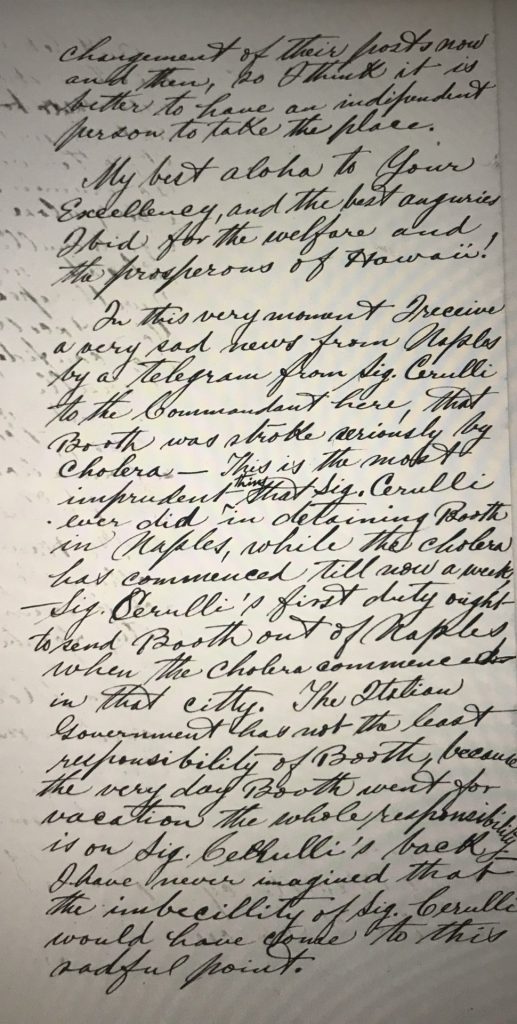 changement of their posts now
and then, so I think it is
better to have an indipendent
person to take the place.
My best aloha to Your
Excellency, and the best auguries
I bid for the welfare and
the prosperous of Hawaii!
In this very moment I receive
a very sad news from Naples
by a telegram from Sig. Cerulli
to the Commandant here, that
Booth was stroke seriously by
Cholera — This is the most
imprudent thing that Sig. Cerulli
ever did in detaining Booth
in Naples, while the cholera
has commenced till now a week,
— Sig. Cerulli's first duty ought
to send Booth out of Naples,
when the cholera commenced
in that citty. The Italian
Government has not the least
responsibility of Booth, because
the very day Booth went for
vacation the whole responsibility
is on Sig. Cerulli's back
I have never imagined that
the imbecillity of Sig. Cerulli
would have come to this
sadful point.